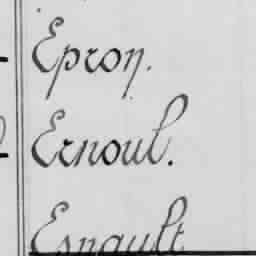 Epron.
Ernoul.
Esnault